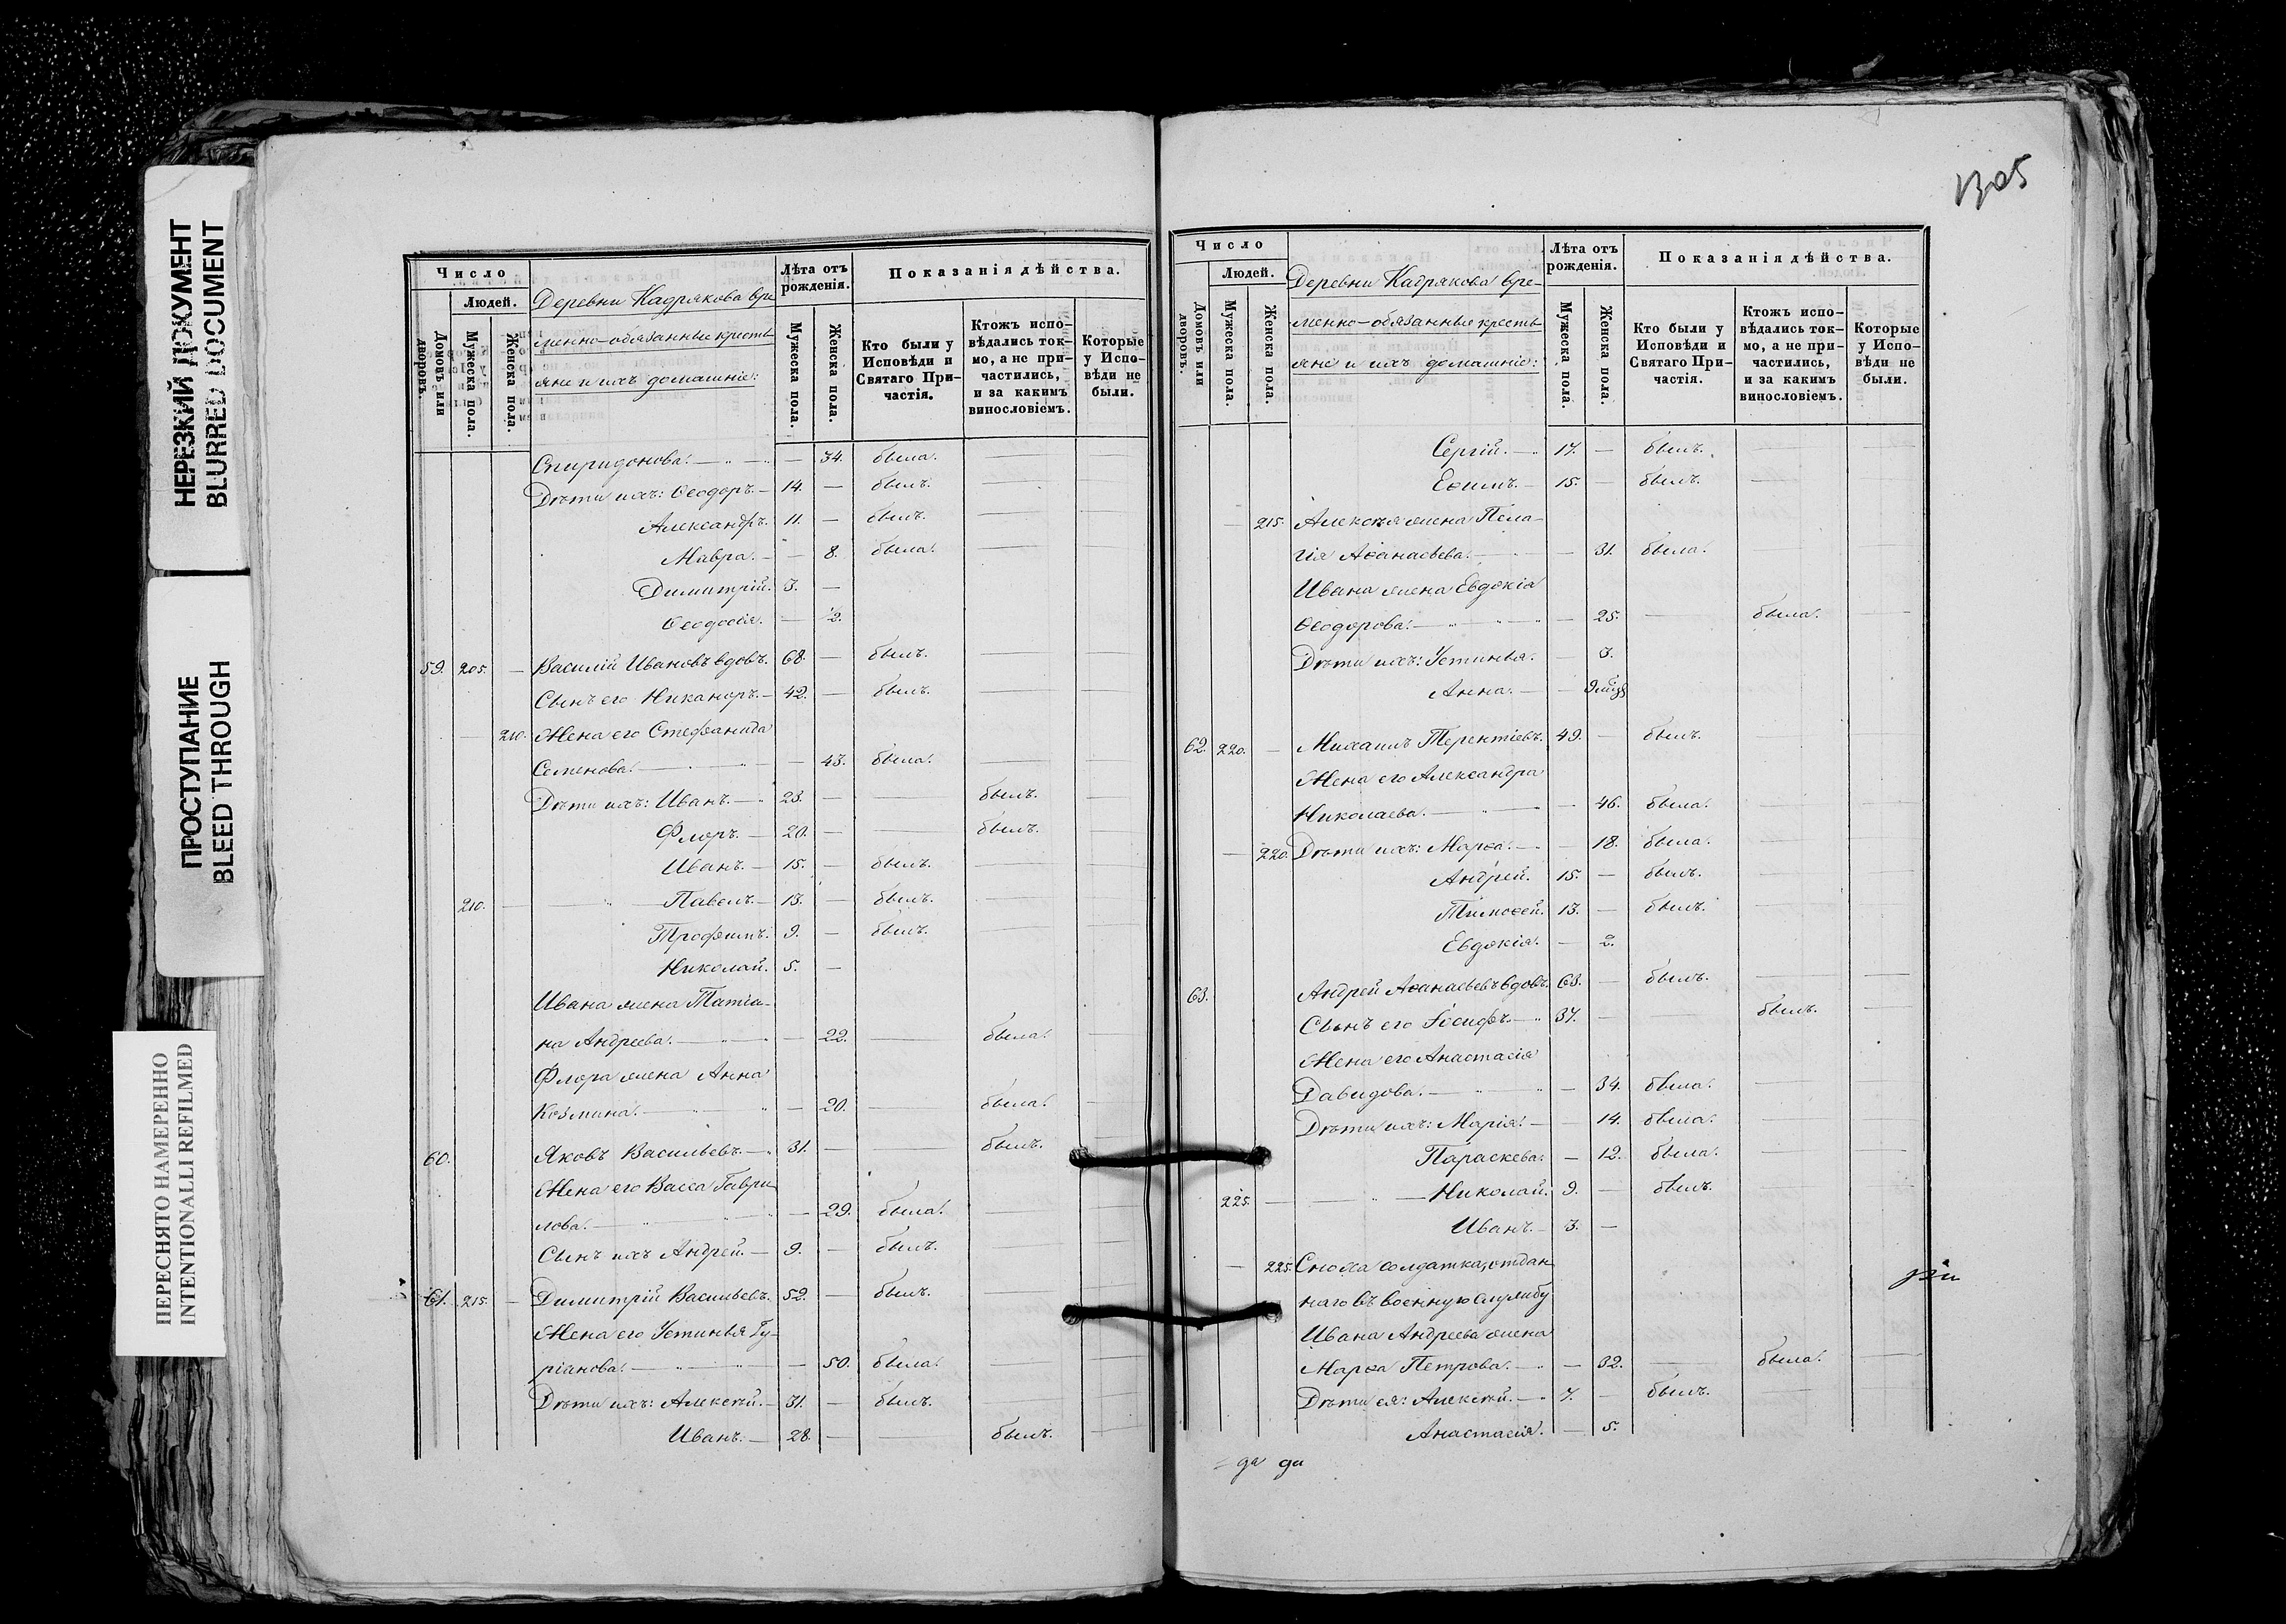 НЕРЕЗКИЙ ДОКУМЕНТ
BLURRED DOCUMENT
ПРОСТУПАНИЕ
BLEED THROUGH
ПЕРЕСНЯТО НАМЕРЕННО
INTENTIONALLI REFILMED
Число
Людей.
Домовъ или дворовъ.
Мужеска пола.
Женска пола.
Деревни Кадрякова вре
менно-обязанные кресть
яне и ихъ домашніе:
Лѣта отъ рожденія.
Мужеска пола.
Женска пола.
Показанія дѣйства.
Кто были у Исповѣди и Святаго При-частія.
Ктожъ испо-вѣдались ток-мо, а не при-частились, и за какимъ винословіемъ.
Которые у Испо-вѣди не были.
Спиридонова. — 34. была.
Дѣти ихъ: Ѳеодоръ. 14. — былъ.
Александръ. 11. — былъ.
Мавра. — 8. была.
Димитрій. 3. —
Ѳеодосія. — 2.
59. 205. — Василій Ивановъ вдовъ. 68. — былъ.
Сынъ его Никаноръ. 42. — былъ.
— 210. Жена его Стефанида
Семенова. — 43. была.
Дѣти ихъ: Иванъ. 23. — — былъ.
Флоръ. 20. — — былъ.
Иванъ. 15. — былъ.
210. — Павелъ. 13. — былъ.
Трофимъ. 9. — былъ.
Николай. 5. —
Ивана жена Татіа-
на Андреева. — 22. — была.
Флора жена Анна
Козмина. — 20. — была.
60. Яковъ Васильевъ. 31. — — былъ.
Жена его Васса Гаври
лова. — 29. была.
Сынъ ихъ Андрей. 9. — былъ.
61. 215. — Димитрій Васильевъ. 52. — былъ.
Жена его Устинья Гу-
ріанова. — 50. была.
Дѣти ихъ: Алексѣй. 31. — былъ.
Иванъ. 28. — — былъ.
1305
Число
Людей.
Домовъ или дворовъ.
Мужеска пола.
Женска пола.
Деревни Кадрякова вре-
менно-обязанные кресть
яне и ихъ домашніе:
Лѣта отъ рожденія.
Мужеска пола.
Женска пола.
Показанія дѣйства.
Кто были у Исповѣди и Святаго При-частія.
Ктожъ испо-вѣдались ток-мо, а не при-частились, и за какимъ винословіемъ.
Которые у Испо-вѣди не были.
Сергій. 17. — былъ.
Ефимъ. 15. — былъ.
— 215. Алексѣя жена Пела-
гія Аѳанасьева. — 31. была.
Ивана жена Евдокія
Ѳеодорова. — 25. — была.
Дѣти ихъ: Устинья. — 3.
Анна. — 9
62. 220. — Михаилъ Терентіевъ. 49. — былъ.
Жена его Александра
Николаева. — 46. была.
— 220. Дѣти ихъ: Марѳа. — 18. была.
Андрей. 15. — былъ.
Тимоѳей. 13. — былъ.
Евдокія. — 2.
63. Андрей Аѳанасьевъ вдовъ. 63. — былъ.
Сынъ его Іосифъ. 37. — — былъ.
Жена его Анастасія
Давидова. — 34. была.
Дѣти ихъ: Марія. — 14. была.
Параскева. — 12. была.
225. — Николай. 9. — былъ.
Иванъ. 3. —
— 225. Сноха солдатка, отдан
наго въ военную службу
Ивана Андреева жена
Марѳа Петрова. — 32. — была.
Дѣти ея: Алексѣй. 7. — былъ.
Анастасія. — 5.
да да